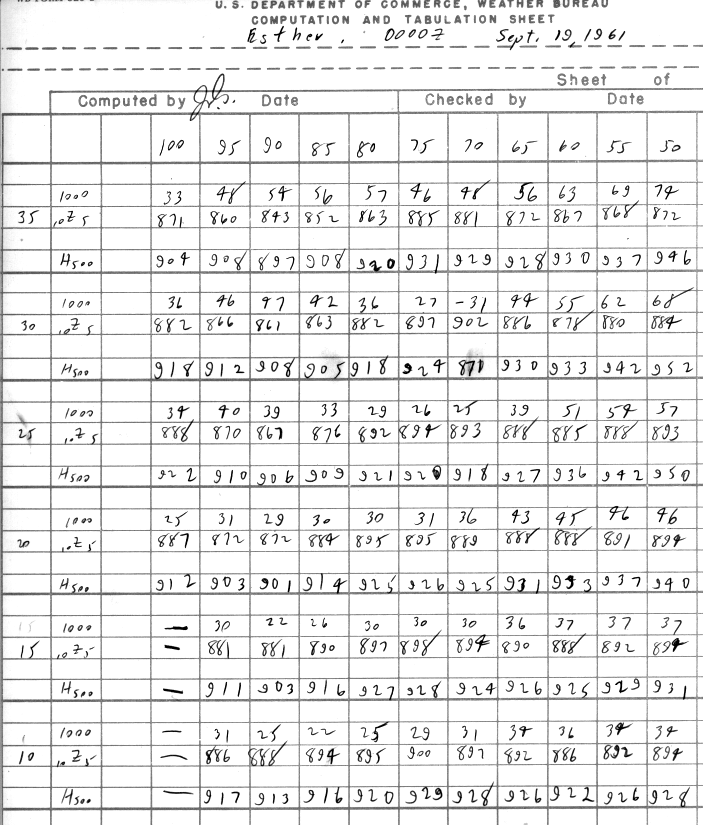 U.S. DEPARTMENT OF COMMERCE, WEATHER BUREAU
COMPUTATION AND TABULATION SHEET
Esther, 0000Z Sept. 19, 1961
Sheet of
Computed by Date Checked by Date
100 95 90 85 80 75 70 65 60 55 50
1000 33 48 54 56 57 46 48 56 63 69 74
35 10Z5 871 860 843 852 863 885 881 872 867 868 872
H500 904 908 897 908 920 931 929 928 930 937 946
1000 36 46 47 42 36 27 -31 44 55 62 68
30 10Z5 882 866 861 863 882 897 902 886 878 880 884
H500 918 912 908 905 918 924 871 930 933 942 952
1000 34 40 39 33 29 26 25 39 51 54 57
25 10Z5 888 870 867 876 892 894 893 888 885 888 893
H500 922 910 906 909 921 920 918 927 936 942 950
1000 25 31 29 30 30 31 36 43 45 46 46
20 10Z5 887 872 872 884 895 895 889 888 888 891 894
H500 912 903 901 914 925 926 925 931 933 937 940
15 1000 — 30 22 26 30 30 30 36 37 37 37
15 10Z5 — 881 881 890 897 898 894 890 888 892 894
H500 — 911 903 916 927 928 924 926 925 929 931
1000 — 31 25 22 25 29 31 34 36 34 34
10 10Z5 — 886 888 894 895 900 897 892 886 892 894
H500 — 917 913 916 920 929 928 926 922 926 928